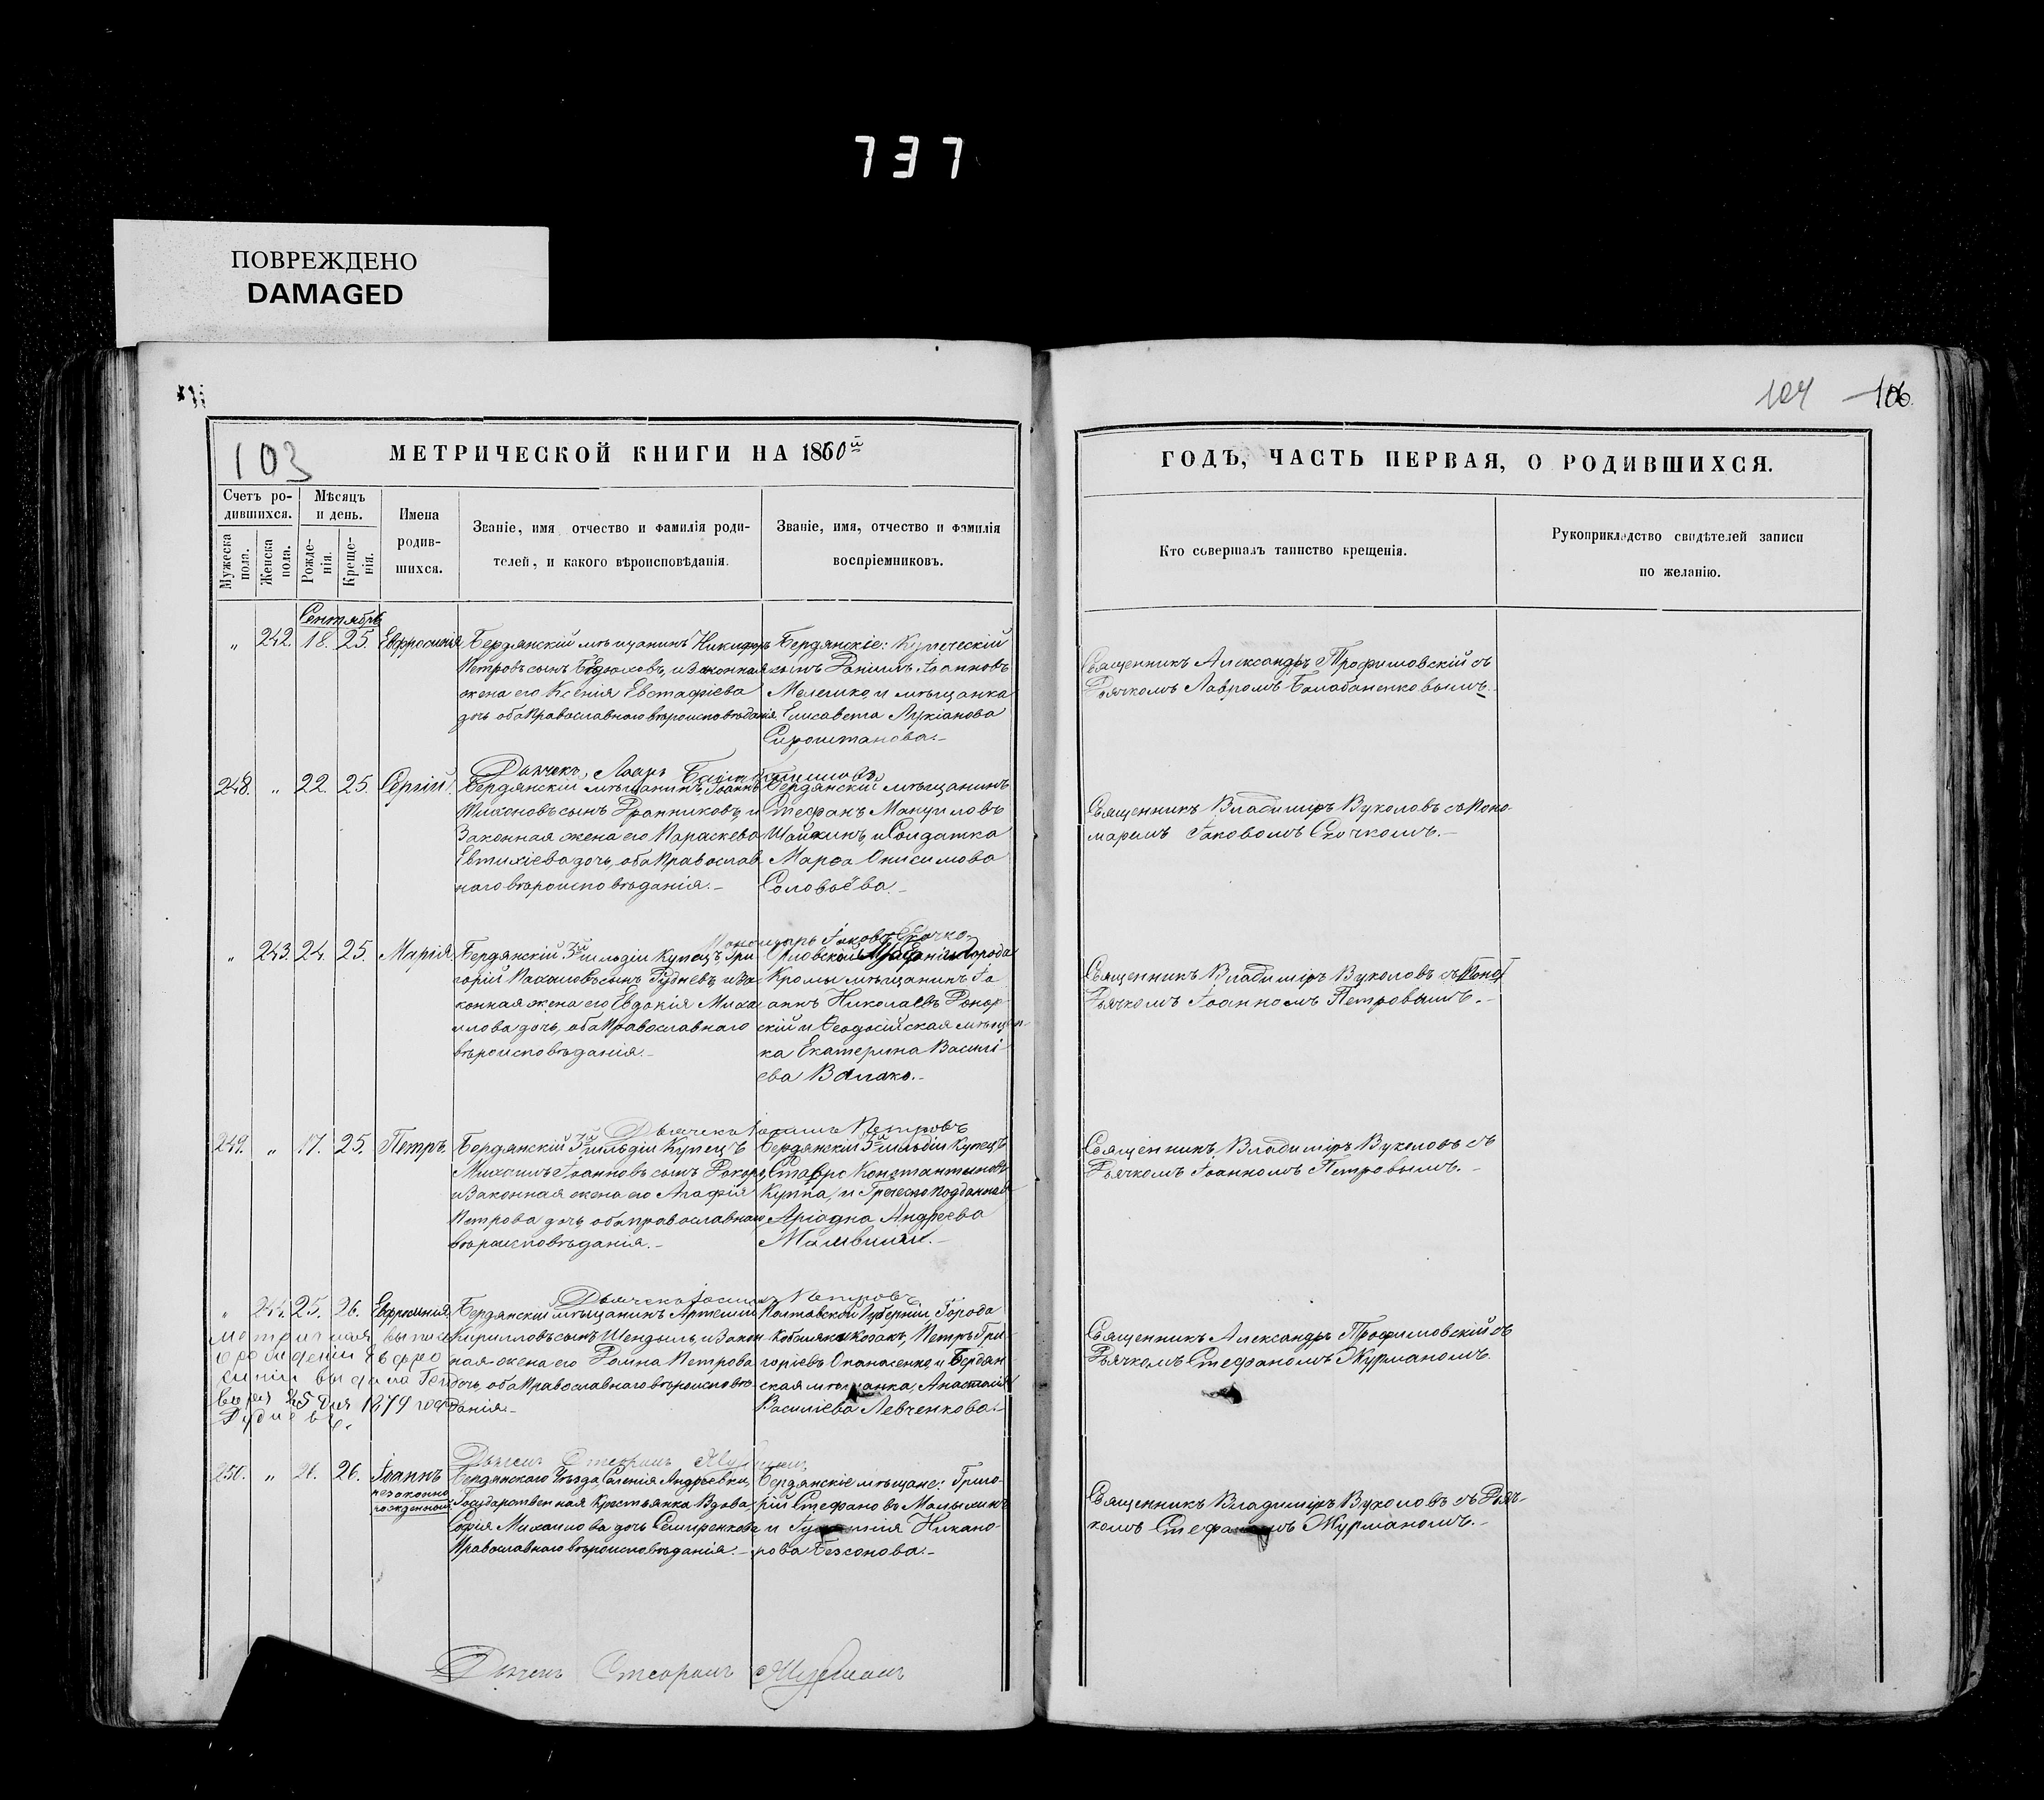 737
ПОВРЕЖДЕНО
DAMAGED
103
МЕТРИЧЕСКОЙ КНИГИ НА 1860й
Счетъ ро-
дившихся.
Мужеска пола.
Женска пола.
Мѣсяцъ
и день.
Рожде-
нія.
Креще-
нія.
Имена
родив-
шихся.
Званіе, имя отчество и фамилія роди-
телей, и какого вѣроисповѣданія.
Званіе, имя, отчество и фамилія
воспріемниковъ.
Сентябрь
„ 242. 18. 25. Евфросинія
Бердянскій мѣщанинъ Никифоръ
Петровъ сынъ и законная
жена его Ксенія Евстафіева
дочь оба Православнаго вѣроисповѣданія.
Бердянскіе: Купеческій
сынъ Даніилъ Іоанновъ
Мелешко и мѣщанка
Елисавета Лукіанова
Сыроштанова.-
Дьячекъ Лавръ
248. „ 22. 25. Сергій.
Бердянскій мѣщанинъ Іоаннъ
Тихоновъ сынъ и
Законная жена его Параскева
Евтихіева дочь, оба Православ
наго вѣроисповѣданія.-
Бердянскій мѣщанинъ
Стефанъ
и Солдатка
Марѳа Онисимова
Соловьёва.-
Пономарь Іаковъ Скочко
„ 243. 24. 25. Марія
Бердянскій 3й гильдіи купецъ Гри
горій сынъ и За
конная жена его Евдокія Миха
илова дочь, оба Православнаго
вѣроисповѣданія.-
Орловской Губерніи Города
Кромы мѣщанинъ Іо
аннъ Николаевъ
скій и Ѳеодосійская мѣщан-
ка Екатерина Василі
ева
Петровъ
249. „ 17. 25. Петръ.
Бердянскій 3й гильдіи Купецъ
Михаилъ Іоанновъ сынъ
и Законная жена его Агафія
Петрова дочь оба православнаго
вѣроисповѣданія.-
Бердянскій 3й гильдіи Купецъ
Ставро Константиновъ
Куппа, и
Аріадна Андреева
Петровъ
„ 244. 25. 26. Евфросинія.
Бердянскій мѣщанинъ Артемій
Кирилловъ сынъ Шендыль, и Закон
ная жена его Домна Петрова
дочь, оба Православнаго вѣроисповѣ
данія.-
Полтавской Губерніи, Города
Кобеляки козакъ, Петръ Гри
горіевъ Опанасенко, и Бердян
ская мѣщанка, Анастасія
Василіева Левченкова.-
1879
Дьячекъ Стефанъ Журманъ
250. „ 26. 26. Іоаннъ
незаконно
рожденный
Бердянскаго Уѣзда, Селенія Андреевки,
Государственная Крестьянка Вдова
Софія Михаилова дочь Семиренкова
Православнаго вѣроисповѣданія.-
Бердянскіе мѣщане: Григо-
рій Стефановъ
и Никано-
рова Безсонова.-
Дьячекъ Стефанъ Журманъ
104 106
ГОДЪ, ЧАСТЬ ПЕРВАЯ, О РОДИВШИХСЯ.
Кто совершалъ таинство крещенія.
Рукоприкладство свидѣтелей записи
по желанію.
Священникъ Александръ Трофимовскій съ
Дьячкомъ Лавромъ Балабаненковымъ.
Священникъ Владиміръ Вуколовъ съ Поно-
маремъ Іаковомъ Скочкомъ.-
Священникъ Владиміръ Вуколовъ съ
Дьячкомъ Іоанномъ Петровымъ.-
Священникъ Владиміръ Вуколовъ съ
Дьячкомъ Іоанномъ Петровымъ.-
Священникъ Александръ Трофимовскій съ
Дьячкомъ Стефаномъ Журманомъ.
Священникъ Владиміръ Вуколовъ съ Дьяч-
комъ Стефаномъ Журманомъ.-